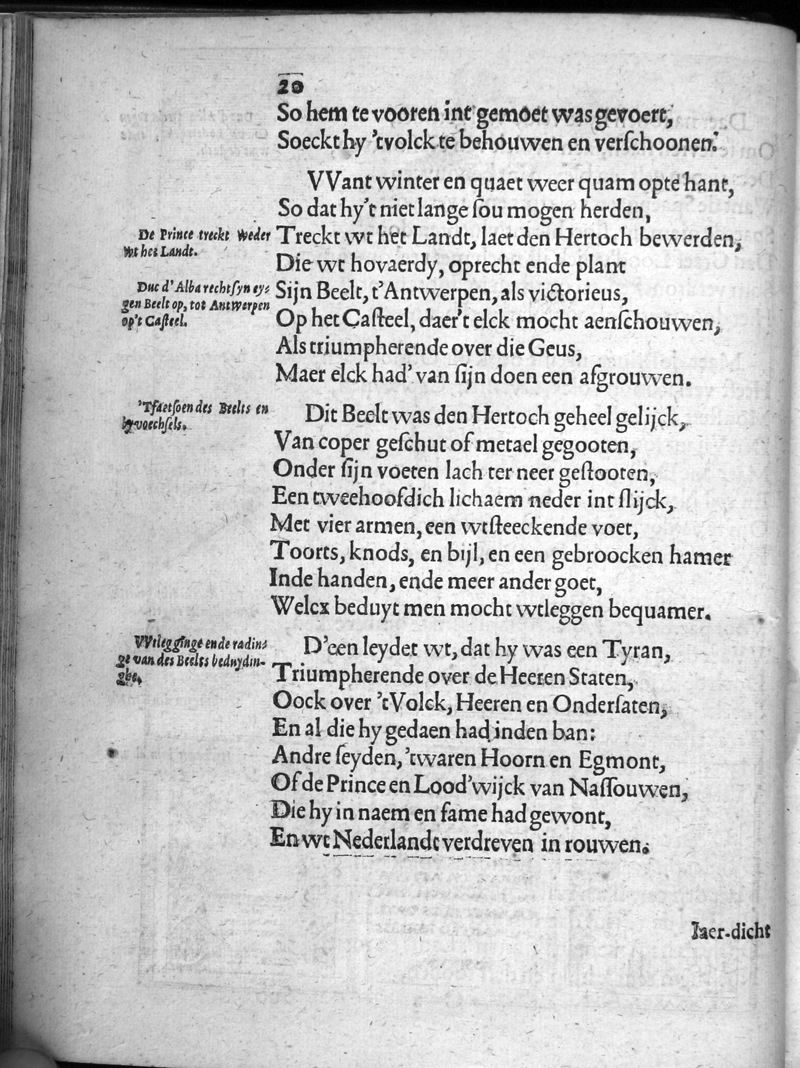 20
So hem te vooren int gemoet was gevoert,
Soeckt hy 'tvolck te behouwen en verſchoonen:
VVant winter en quaet weer quam opte hant,
So dat hy't niet lange ſou mogen herden,
De Prince treckt weder
wt het Landt.
Treckt wt het Landt, laet den Hertoch bewerden,
Die wt hovaerdy, oprecht ende plant
Duc d'Alba recht ſyn ey-
gen Beelt op, tot Antwerpen
op't Caſteel.
Sijn Beelt, t'Antwerpen, als victorieus,
Op het Caſteel, daer't elck mocht aenſchouwen,
Als triumpherende over die Geus,
Maer elck had' van ſijn doen een afgrouwen.
'Tfaetſoen des Beelts en
bywechſels.
Dit Beelt was den Hertoch geheel gelijck,
Van coper geſchut of metael gegooten,
Onder ſijn voeten lach ter neer geſtooten,
Een tweehoofdich lichaem neder int ſlijck,
Met vier armen, een wtſteeckende voet,
Toorts, knods, en bijl, en een gebroocken hamer
Inde handen, ende meer ander goet,
Welcx beduyt men mocht wtleggen bequamer.
VVtlegginge ende radin-
ge van des Beelts beduydin-
ghe.
D'een leydet wt, dat hy was een Tyran,
Triumpherende over de Heeren Staten,
Oock over 'tVolck, Heeren en Onderſaten,
En al die hy gedaen had inden ban:
Andre ſeyden, 'twaren Hoorn en Egmont,
Of de Prince en Lood'wijck van Naſſouwen,
Die hy in naem en fame had gewont,
En wt Nederlandt verdreven in rouwen.
Iaer-dicht